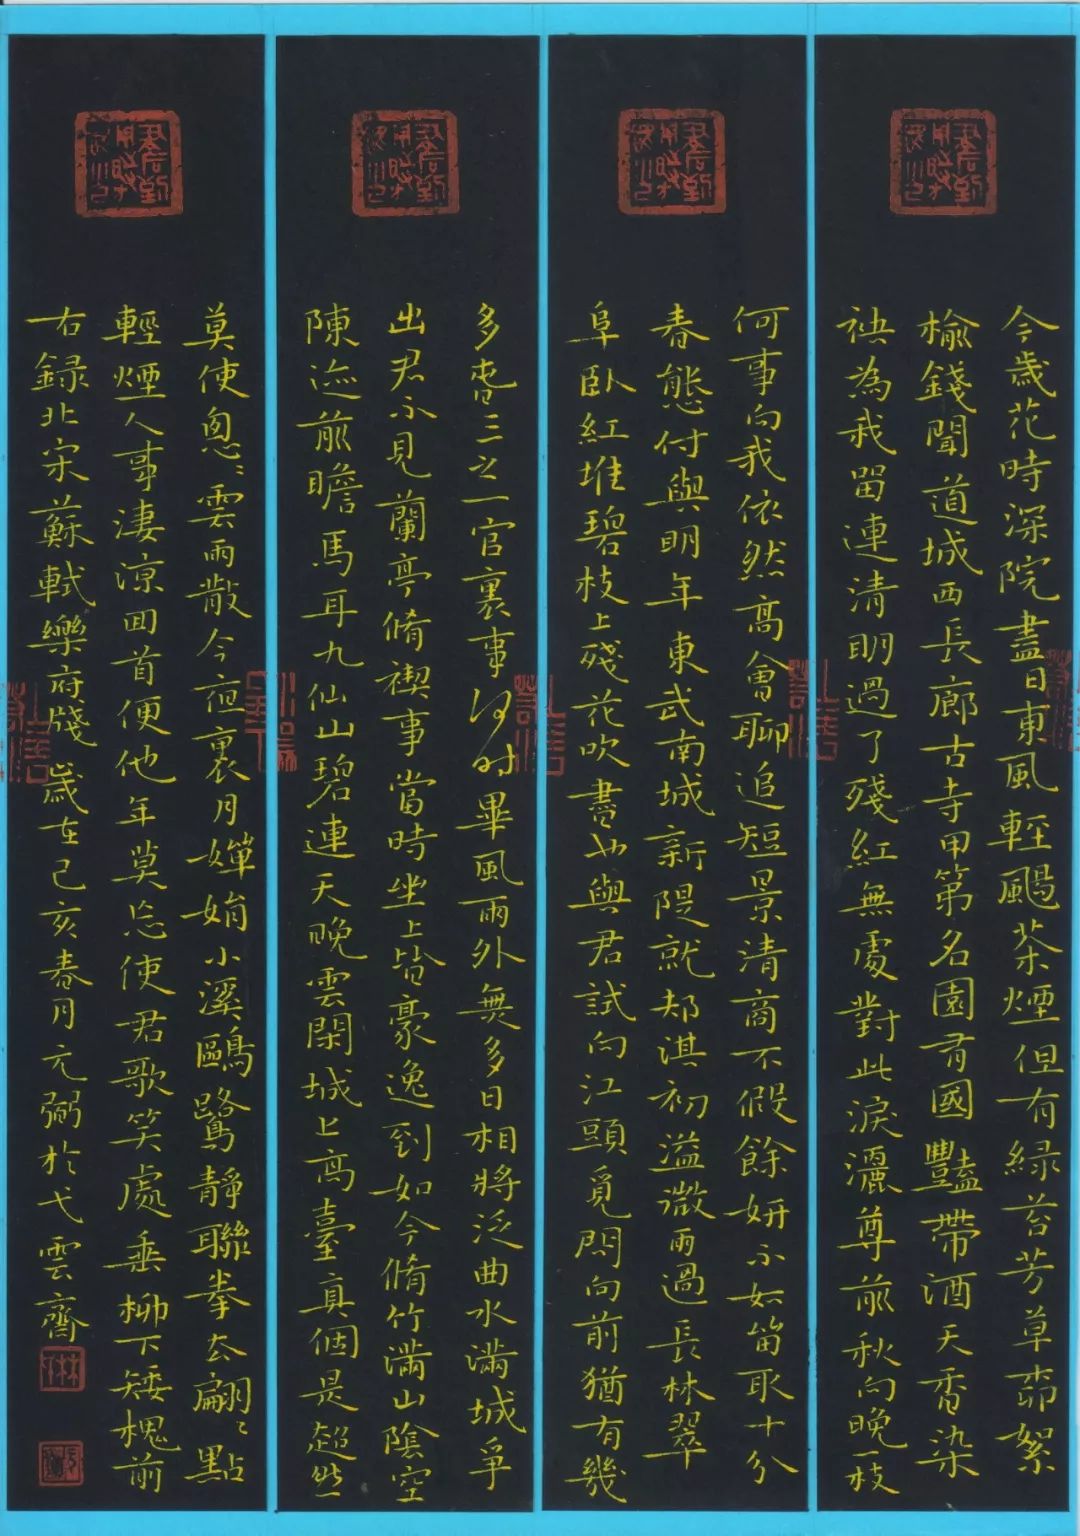 今歲花時深院盡日東風輕颺茶煙但有綠苔芳草柳絮
榆錢聞道城西長廊古寺甲第名園有國豔帶酒天香染
袂為我留連清明過了殘紅無處對此淚灑尊前秋向晚一枝
何事向我依然高會聊追短景清商不假餘妍不如留取十分
春態付與明年東武南城新隄就郟淇初溢微雨過長林翠
阜臥紅堆碧枝上殘花吹盡也與君試向江頭覓問向前猶有幾
多春三之一官裏事何時畢風雨外無多日相將泛曲水滿城爭
出君不見蘭亭脩禊事當時坐上皆豪逸到如今脩竹滿山陰空
陳迹前瞻馬耳九仙山碧連天晚雲閑城上高臺真個是超然
莫使匆匆雲雨散今夜裏月嬋娟小溪鷗鷺靜聯拳去翩翩點
輕煙人事淒涼回首便他年莫忘使君歌笑處垂柳下矮槐前
右錄北宋蘇軾樂府牋歲在己亥春月元弼於弋雲齋